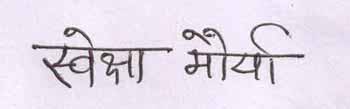 स्वेक्षा मौर्या